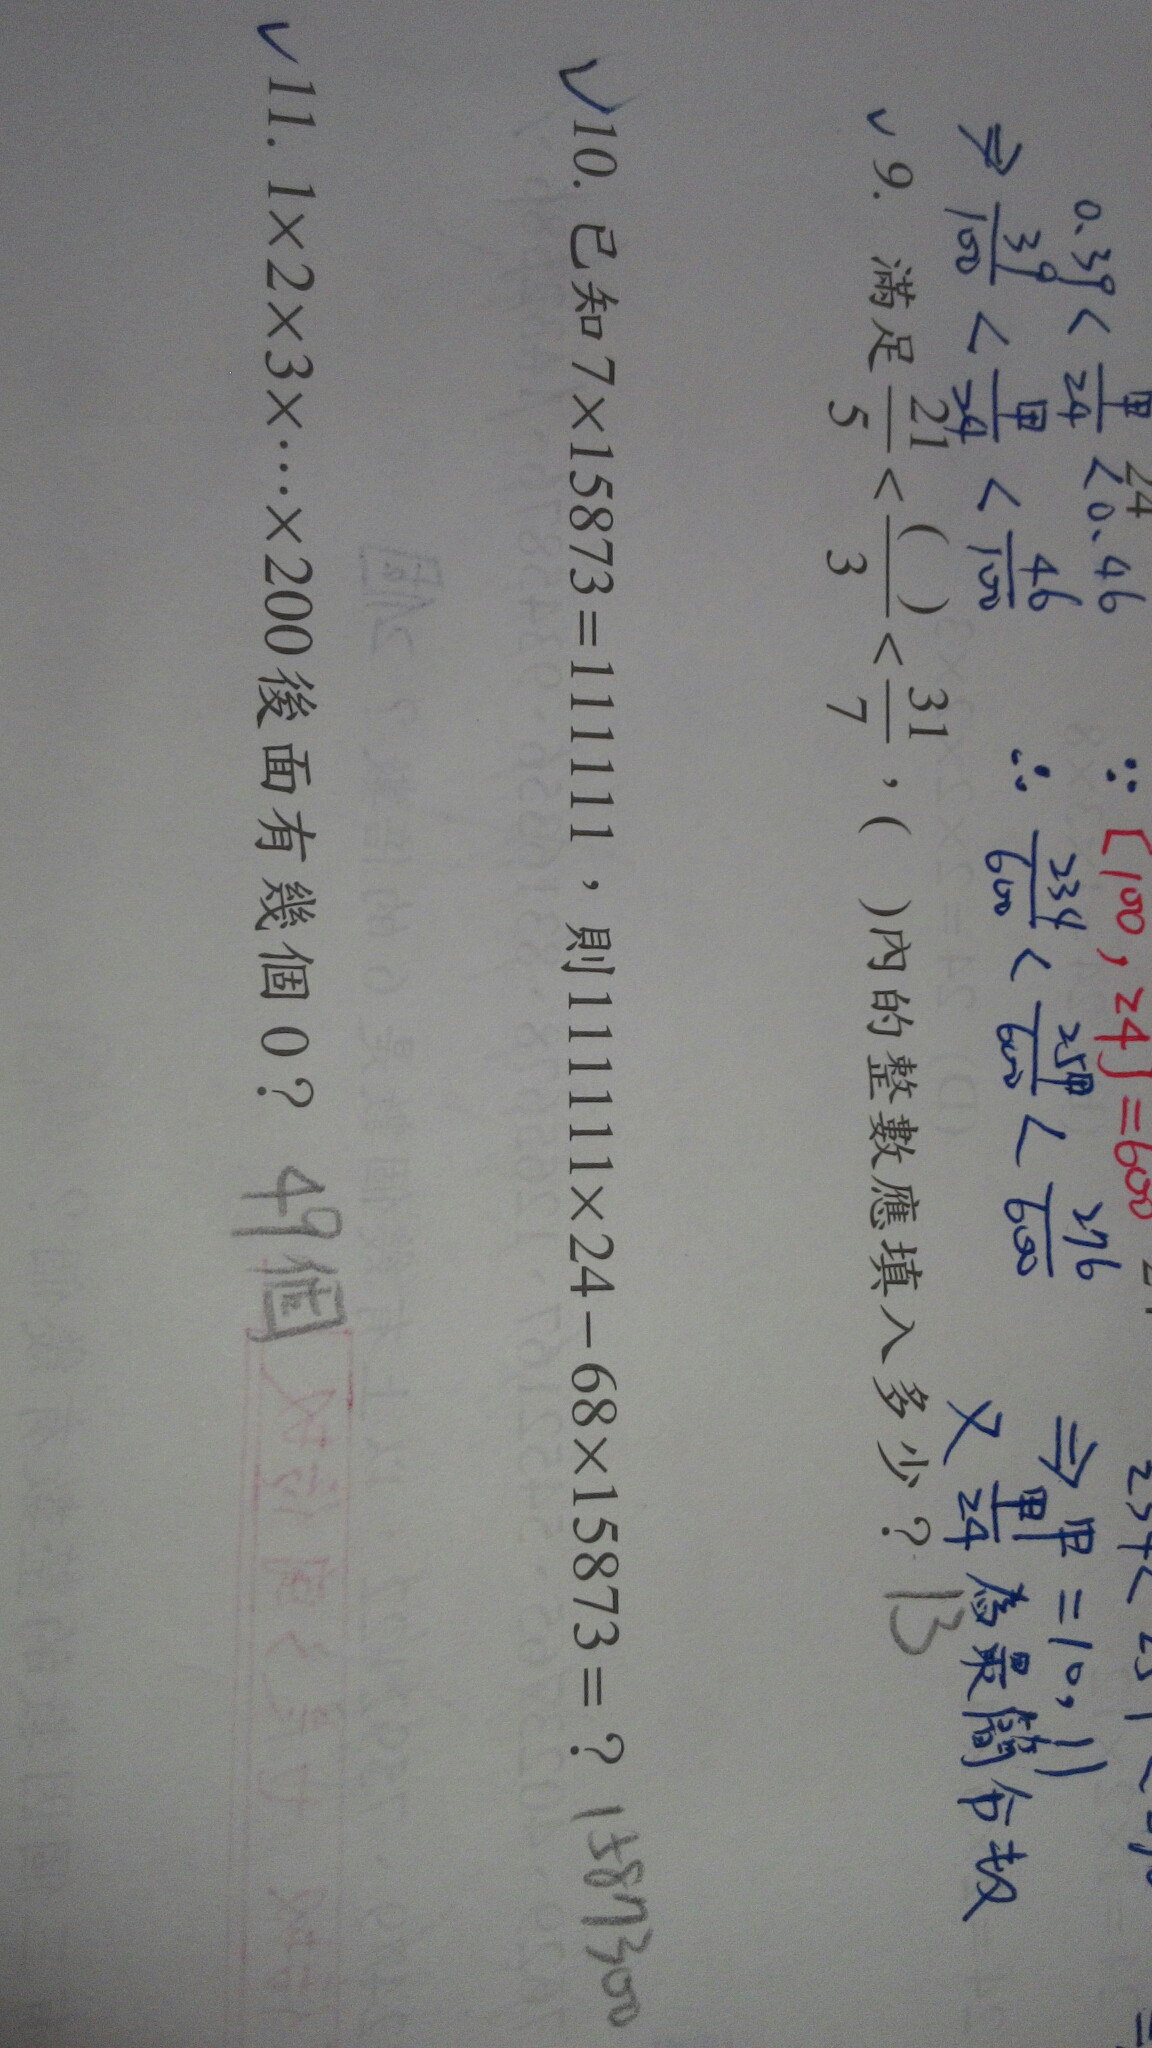 0.39 < 甲/24 < 0.46 ∵ [100, 24] = 600
⇒ 39/100 < 甲/24 < 46/100 ∴ 234/600 < 25甲/600 < 276/600 ⇒ 甲 = 10, 11
又 甲/24 為最簡分數
✓ 9. 滿足 21/5 < ( )/3 < 31/7，( )內的整數應填入多少？ 13
✓ 10. 已知7×15873=111111，則111111×24−68×15873=？ 1587300
✓ 11. 1×2×3×…×200後面有幾個0？ 49個